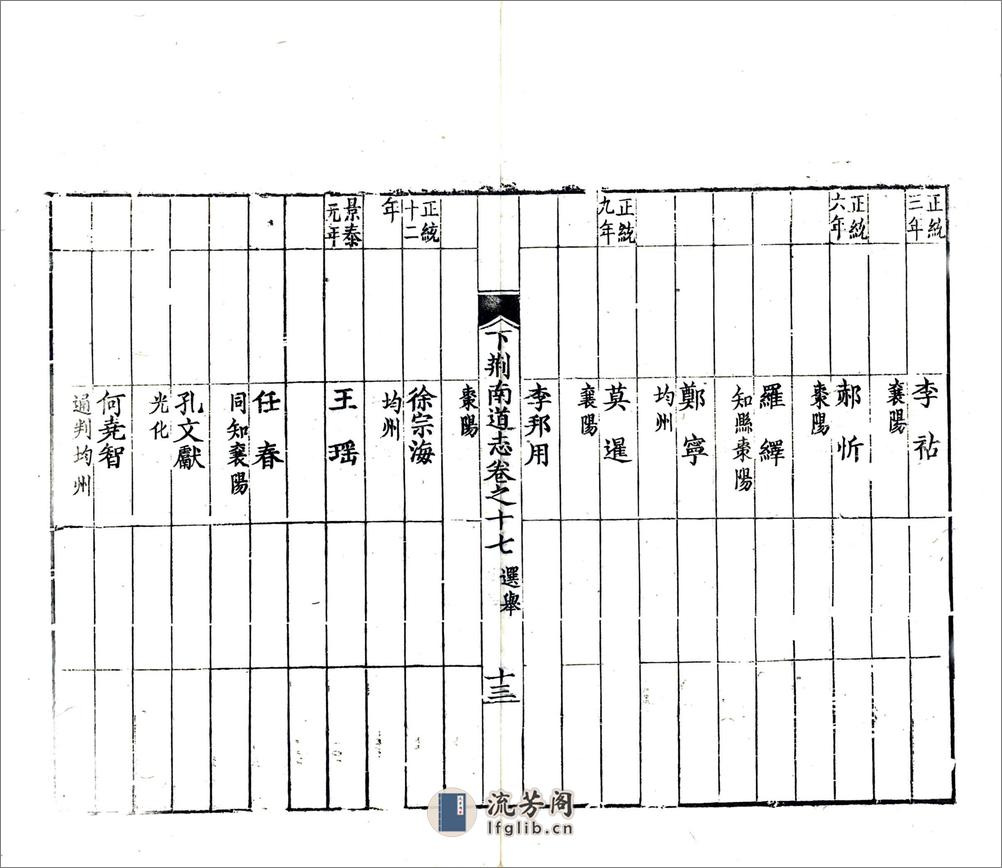 正統三年
李祜
襄陽
正統六年
郝忻
棗陽
羅繹
知縣棗陽
鄭寧
均州
正統九年
莫暹
襄陽
李邦用
棗陽
下荆南道志卷之十七 選舉 十三
正統十二年
徐宗海
均州
景泰元年
王瑶
任春
同知襄陽
孔文獻
光化
何堯智
通判均州
流芳阁
lfglib.cn